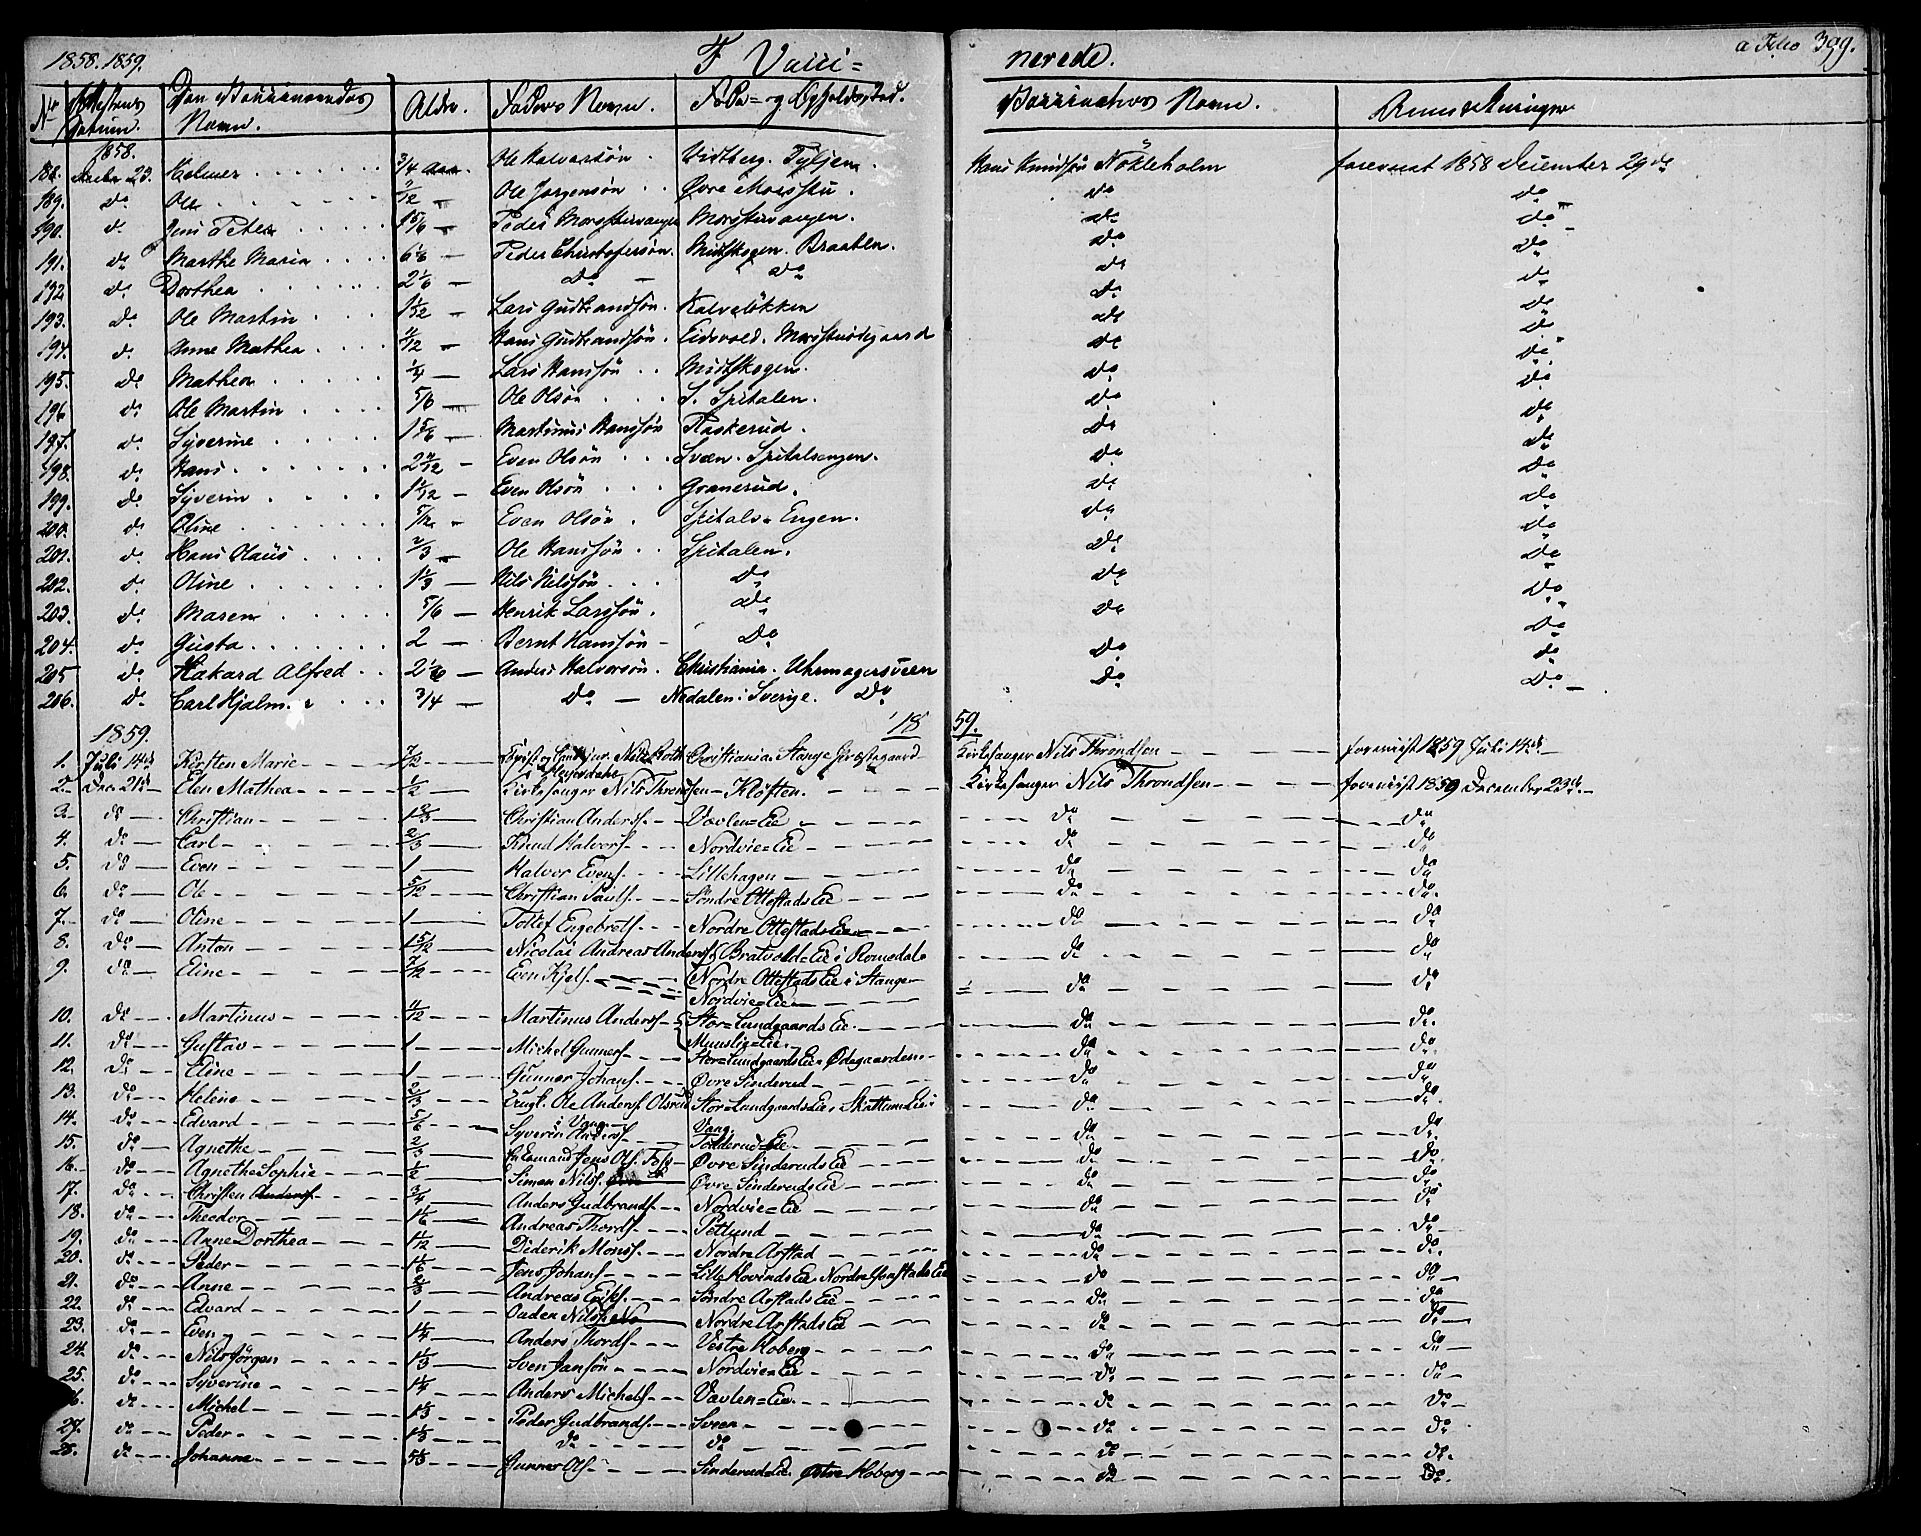 1858. 1859. F Vacci= nerede. a Folio 399.
No Attestens Datum. Den Vaccineredes Navn. Alder. Faders Navn. Føde= og Opholds,sted. Vaccinators Navn. Anmærkninger
1858.
188. Decbr 23. Helmer 3/4 Aar. Ole Halvorsön Vidtberg. Hans Knudsön Nökleholm foreviist 1858 December 29de
189. do Ole /12 Ole Jörgensön Øvre Morstu do do
190. d. Jens Peter 1 5/6 Peder Morstuvangen Morstuvangen. do do
191. do Marthe Maria 6 1/6 Peder Christofersön. Midtskogen. Braaten. do do
192 do Dorthea 2 1/6 do do do do
193. do Ole Martin 1 /12 Lars Gudbrandsön Kalvelökken do do
194. do Anne Mathea /12 Hans Gudbrandsön. Eidsvold. Morstuödegaard do do
195. do Mathea 1/4 Lars Hanssön Midtskogen. do do
196 do Ole Martin 5/6 Ole Olsön S. Spitalen. do do
197. do Syverine 1 5/6 Martinus Hanssön Raskerud. do do
198. do Hans 2 /12 Even Olsön Svæn. Spitalsengen. do do
199. do Syverin 1 /12 Even Olsön Granerud. do do
200. do Oline 5/12 Even Olsön Spitals=Engen. do do
201. do Hans Olaus 2/3 Ole Hanssön Spitalen. do do
202. do Oline 1 1/3 Nils Nilssön do do do
203. do Maren 5/6 Henrik Larssön. do do do
204. do Gusta 2 Bernt Hanssön do do do
205 do Hakard Alfred 2 1/6 Anders Halvorsön. Christiania. Uhrmagersveen do do
206. do Carl Hjalm.r 3/4 do Nedalen i Sverige. do do do
1859. 1859.
1. Juli 14de Kirsten Marie 7/12 Nils Christiania Stange Præstegaard Kirkesanger Nils Throndsen foreviist 1859 Juli 14de
2. Dec 21de Elen Mathea 1/2 Kirkesanger Nils Throndsen Kloften. Kirkesanger Nils Throndsen foreviist 1859 December 23de.
3. do Christian 1 2/3 Christian Anders. Vavlen=Eie do do
4. do Carl 2/3 Knud Halvors. Nordvie=Eie do do
5. do Even 1 Halvor Evens. Lillehagen do do
6. do Ole 5/12 Christian Pauls. Söndre Ottestads Eie do do
7. do Oline 1 Tollef Engebrets. Nordre Ottestads Eie do do
8. do Anton 1 5/12 Nicolai Andreas Anders. Bratvold=Eie i Romedal do do
9. do Eline 7/12 Even Kjels. Nordre Ottestads Eie i Stange do do
Nordvie=Eie
10. do Martinus /12 Martinus Anders. Stor=Lundgaards Eie. do do
11. do Gustav 1 Michel Gunners. Muuslie=Eie. do do
12. do Eline 1 Gunner Johans. Stor=Lundgaards Eie Ødegaarden. do do
13. do Helene 2/3 Ungk. Ole Anders. Olsrud Øvre Sinderud do do
14. do Edvard 5/6 i Vang Stor=Lundgaards Eie, Skattum Eie i Vang do do
15. do Agnethe 2/3 Syverin Anders. Tolderud=Eie do do
16. do Agnethe Sophie 1/2 Jens Ols. Foss Øvre Sinderuds Eie do do
17. do Christen Anders. 3/4 Simon Nils. Øvre Sinderuds Eie do do
18. do Theodor 1 1/6 Anders Gudbrands. Nordvie=Eie do do
19. do Anne Dorthea 1 1/12 Andreas Thords. Petlund do do
20. do Peder 1 1/6 Diderik Mons. Nordre Arstad do do
21. do Anne 2/3 Jens Johans. Lille Hovinds Eie Nordre Gonstads Eie do do
22. do Edvard 1 Andreas Eriks. Söndre Arstads Eie do do
23. do Even 1 1/4 Ouden Nils. Nordre Arstads Eie do do
24. do Nils Jörgen 1 1/3 Anders Thords. Vestre Hoberg do do
25. do Syverine 1 1/4 Sven Jansön Nordvie=Eie do do
26. do Michel 1 1/3 Anders Michels. Vavlen=Eie. do do
27. do Peder 1 1/3 Peder Gudbrands. Sveen do do
28. do Johanne 5/3 do do do do
Gunner Ols. Sinderuds Eie. Østre Hoberg do do